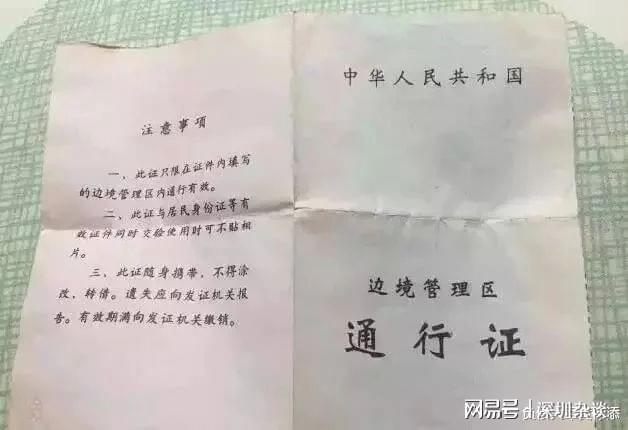 注意事项
一、此证只限在证件内填写
的边境管理区内通行有效。
二、此证与居民身份证等有
效证件同时交验使用时可不贴相
片。
三、此证随身携带，不得涂
改、转借。遗失应向发证机关报
告。有效期满向发证机关缴销。
中华人民共和国
边境管理区
通行证
网易号 | 深圳杂谈